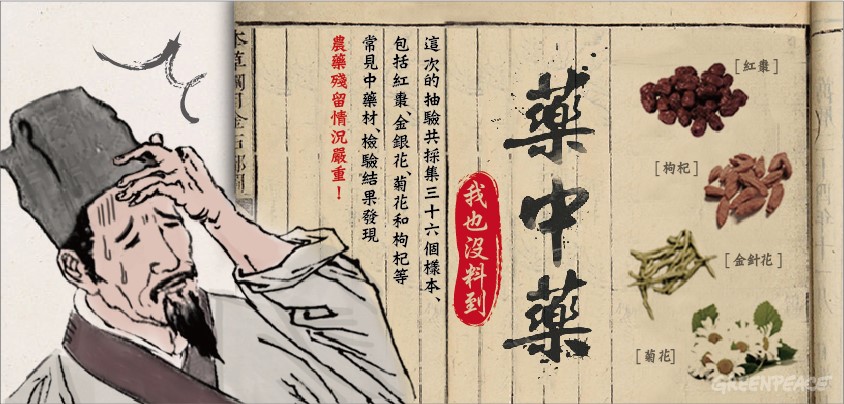 [紅棗]
[枸杞]
[金針花]
[菊花]
藥中藥
我也沒料到
這次的抽驗共採集三十六個樣本、
包括紅棗、金銀花、菊花和枸杞等
常見中藥材、檢驗結果發現
農藥殘留情況嚴重！
本草綱目金石部
GREENPEACE